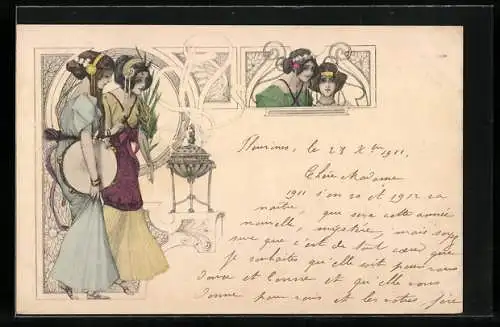 le 28 Xbre 1911.
Chère Madame
1911 s'en va et 1912 va
naître, que sera cette année
nouvelle, mystère, mais soyez
sure que c'est de tout cœur que
je souhaites qu'elle soit pour vous
douce et bonne et qu'elle vous
donne pour vous et les vôtres